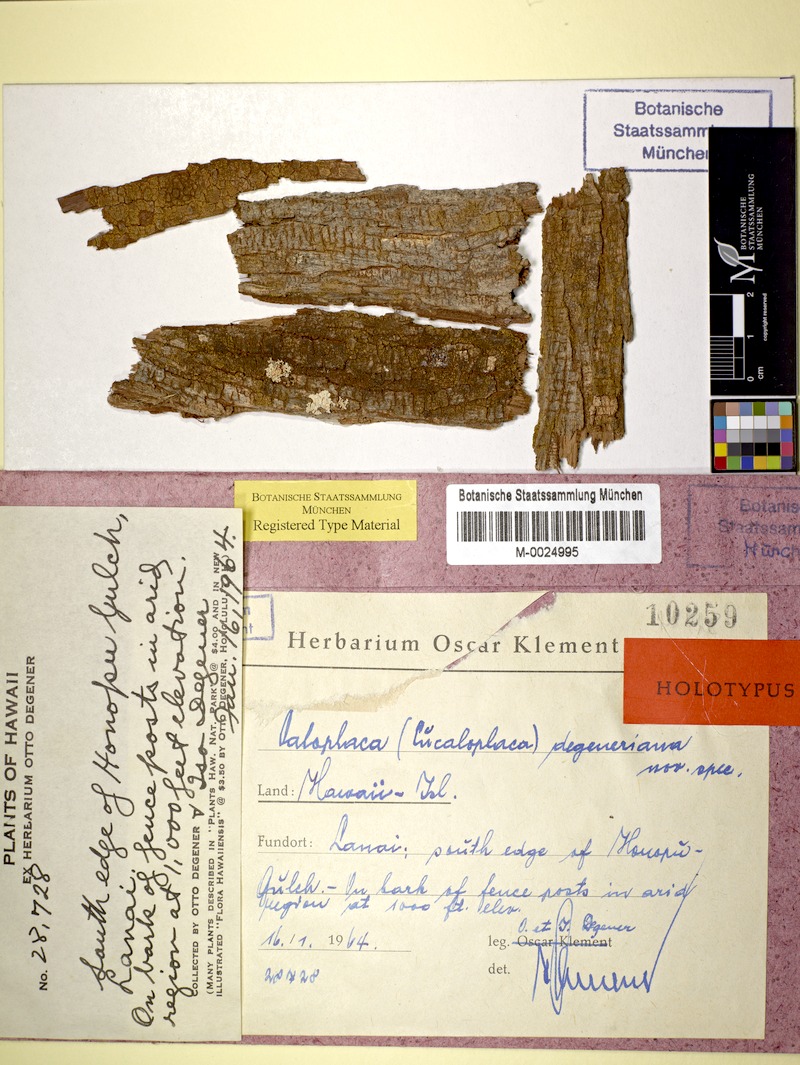 Botanische
Staatssamm
München
BOTANISCHE
STAATSSAMMLUNG
MÜNCHEN
copyright reserved
0 1 2
cm
BOTANISCHE STAATSSAMMLUNG
MÜNCHEN
Registered Type Material
Botanische Staatssammlung München
M-0024995
Botanis
Staatssam
Münch
PLANTS OF HAWAII
EX HERBARIUM OTTO DEGENER
No. 28,728
South edge of Honopu Gulch,
Lanai.
On bark of fence posts in arid
region at 1,000 feet elevation.
COLLECTED BY OTTO DEGENER & Isa Degener
Jan. 16, 1964.
(MANY PLANTS DESCRIBED IN "PLANTS HAW. NAT. PARK" @ $4.00 AND IN NEW
ILLUSTRATED "FLORA HAWAIIENSIS" @ $3.50 BY OTTO DEGENER, HONOLULU
10259
Herbarium Oscar Klement
HOLOTYPUS
Caloplaca (Eucaloplaca) degeneriana
nov. spec.
Land: Hawaii-Isl.
Fundort: Lanai; south edge of Honopu-
Gulch. - On bark of fence posts in arid
region at 1000 ft. elev.
O. et I. Degener
16. 1. 1964. leg. Oscar Klement
28728 det. Klement